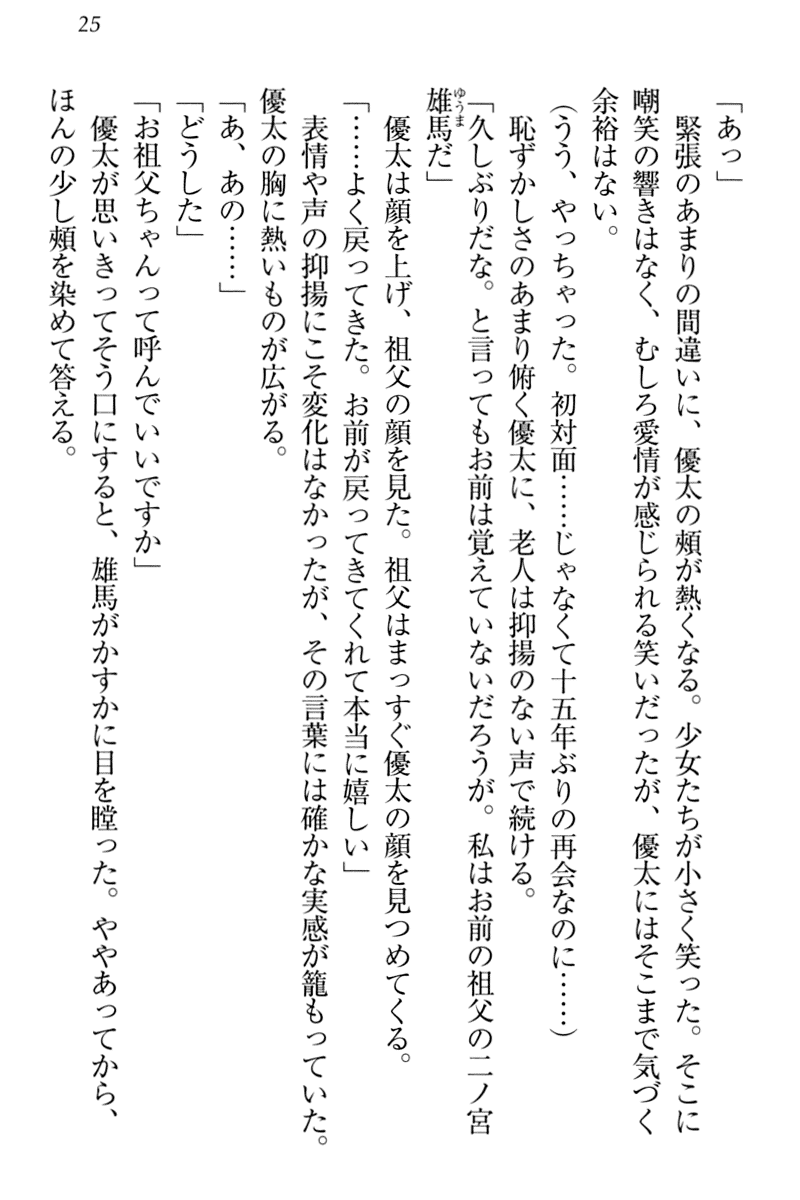 25
「あっ」
　緊張のあまりの間違いに、優太の頰が熱くなる。少女たちが小さく笑った。そこに
嘲笑の響きはなく、むしろ愛情が感じられる笑いだったが、優太にはそこまで気づく
余裕はない。
（うう、やっちゃった。初対面……じゃなくて十五年ぶりの再会なのに……）
　恥ずかしさのあまり俯く優太に、老人は抑揚のない声で続ける。
「久しぶりだな。と言ってもお前は覚えていないだろうが。私はお前の祖父の二ノ宮
雄馬だ」
ゆうま
　優太は顔を上げ、祖父の顔を見た。祖父はまっすぐ優太の顔を見つめてくる。
「……よく戻ってきた。お前が戻ってきてくれて本当に嬉しい」
　表情や声の抑揚にこそ変化はなかったが、その言葉には確かな実感が籠もっていた。
優太の胸に熱いものが広がる。
「あ、あの……」
「どうした」
「お祖父ちゃんって呼んでいいですか」
　優太が思いきってそう口にすると、雄馬がかすかに目を瞠った。ややあってから、
ほんの少し頰を染めて答える。